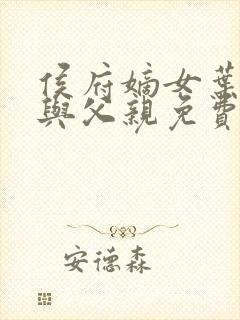 侯府嫡女葉
與父親免費
安德森